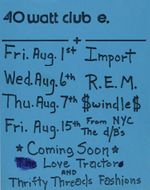 40 watt club e.
Fri. Aug. 1st Import
Wed. Aug. 6th R.E.M.
Thu. Aug. 7th $windle$
Fri. Aug. 15th From NYC
The d/B's
* Coming Soon *
The Love Tractor
AND
Thrifty Threads Fashions